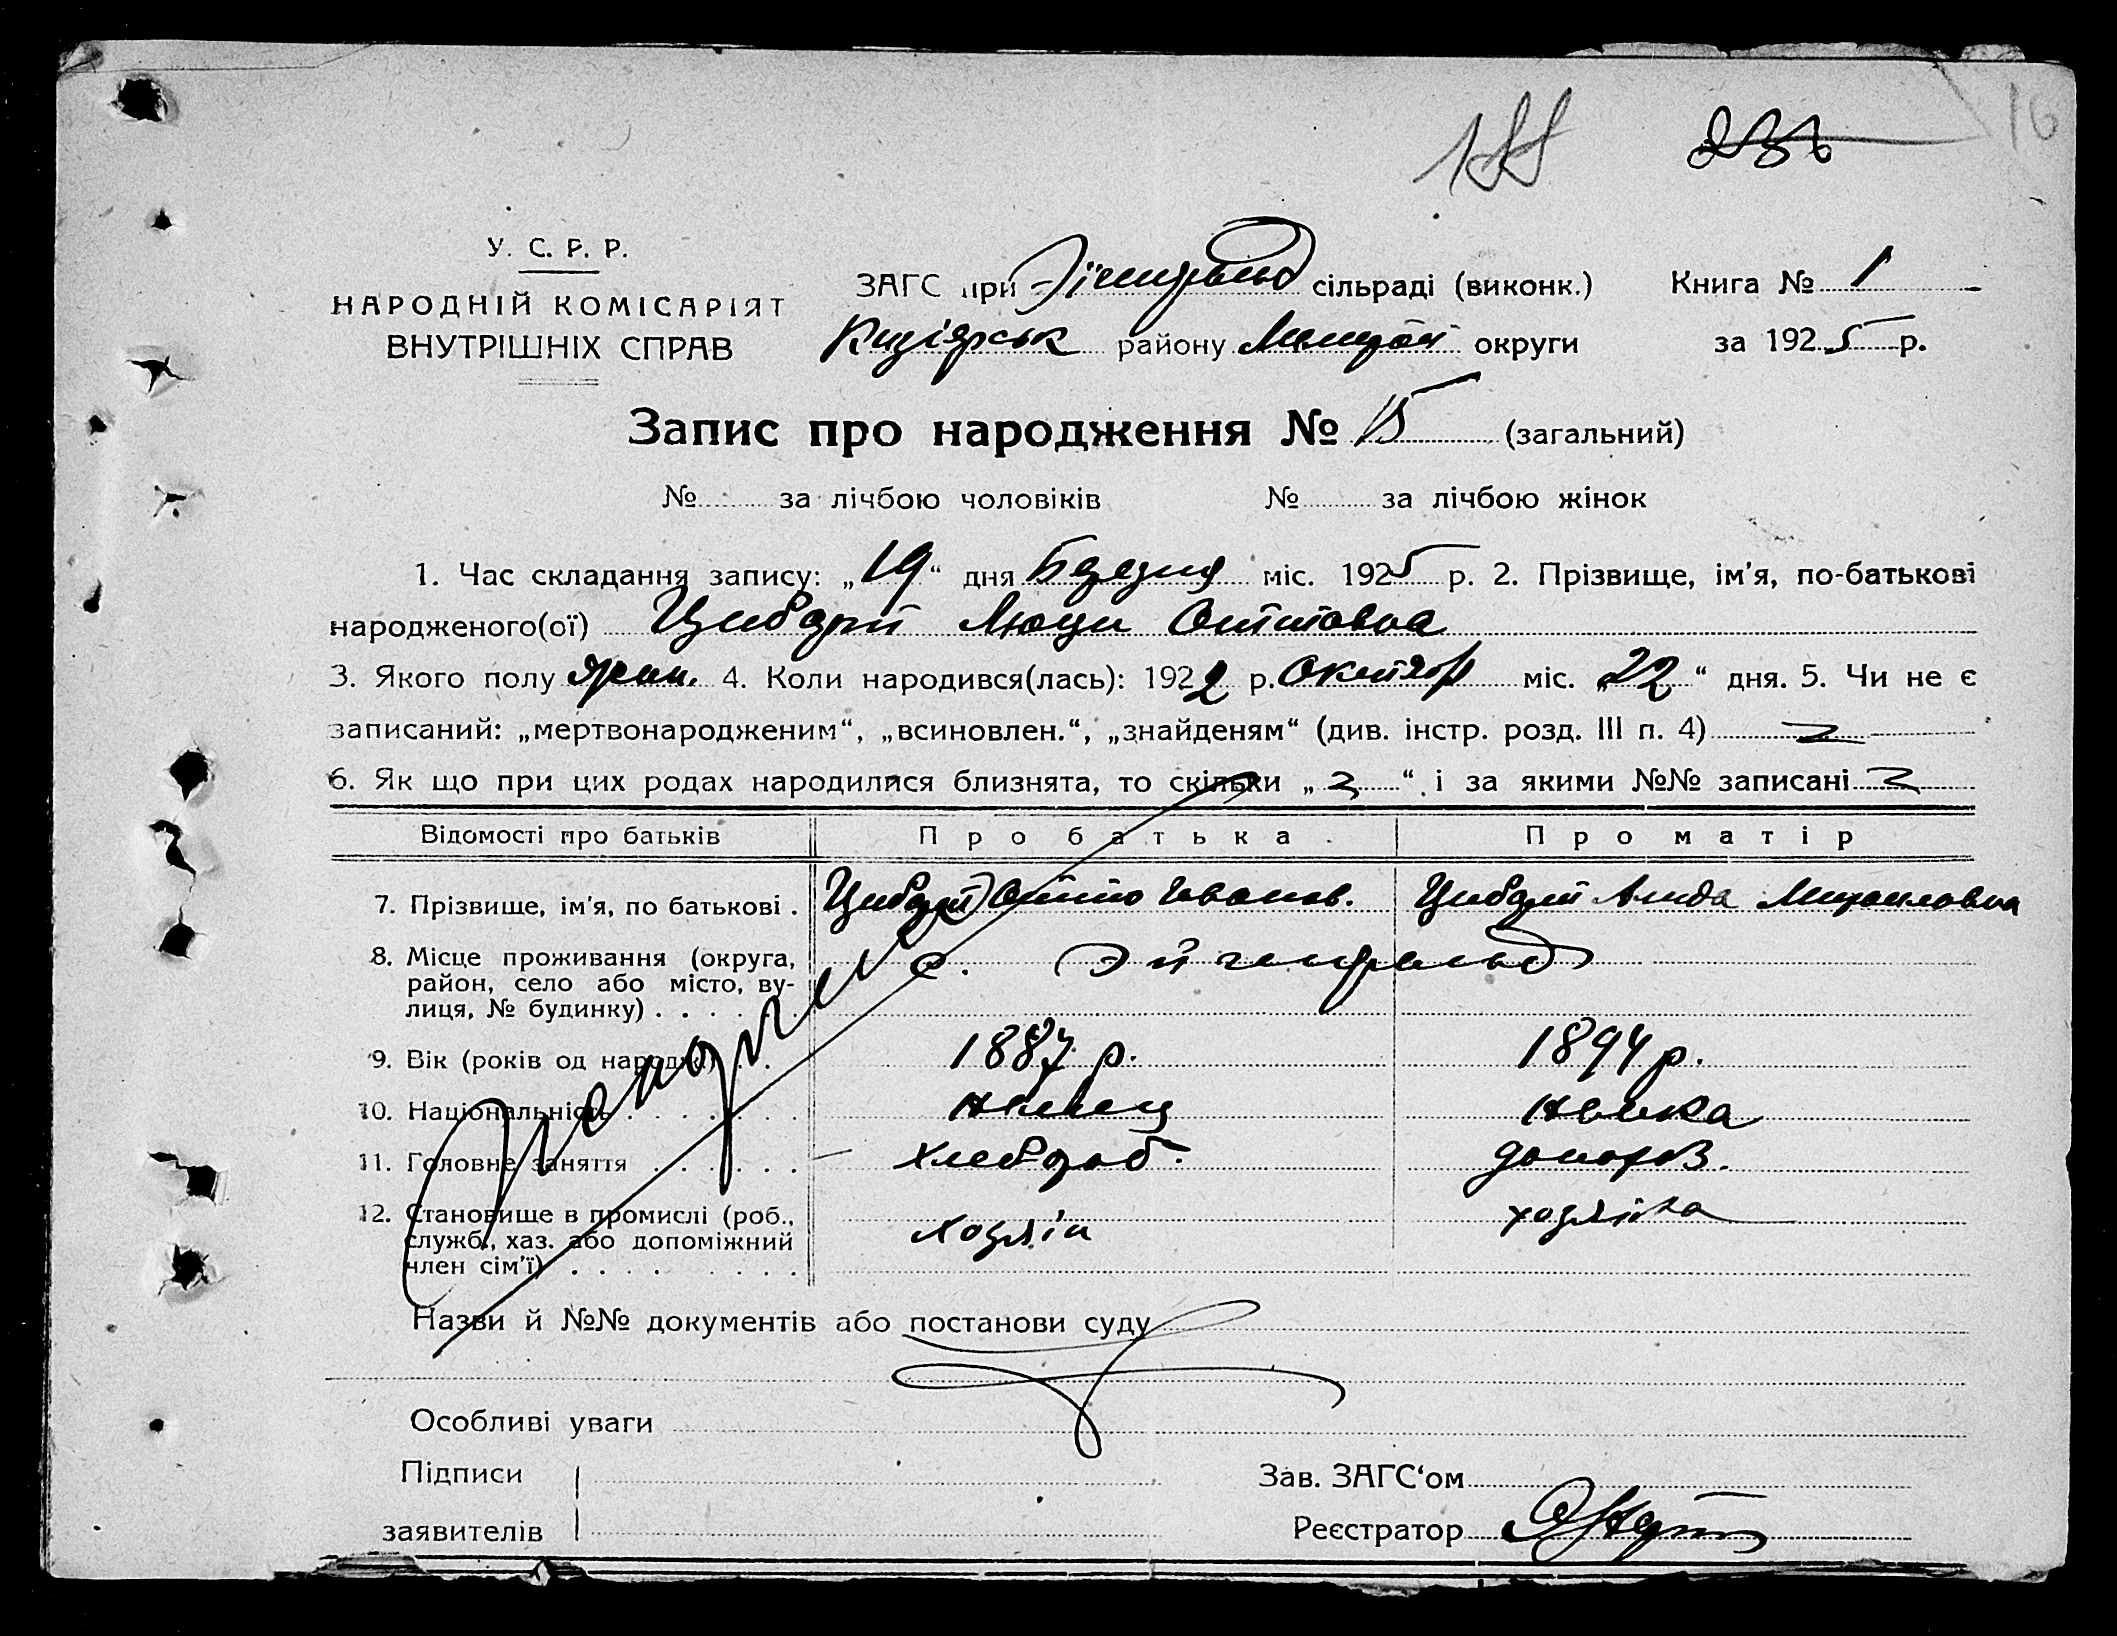 188 236 16
У. С. Р. Р.
НАРОДНІЙ КОМІСАРІЯТ
ВНУТРІШНІХ СПРАВ
ЗАГС при сільраді (виконк.) Книга № 1
Кизіярськ району Мелитоп округи за 1925 р.
Запис про народження № 15 (загальний)
№ за лічбою чоловіків № за лічбою жінок
1. Час складання запису: „19“ дня Березня міс. 1925 р. 2. Прізвище, ім'я, по-батькові
народженого(ої) Цибарт Люци Оттовна
3. Якого полу жен. 4. Коли народився(лась): 1922 р. Октябр міс. „22“ дня. 5. Чи не є
записаний: „мертвонародженим“, „всиновлен.“, „знайденям“ (див. інстр. розд. III п. 4)
6. Як що при цих родах народилися близнята, то скільки „ “ і за якими №№ записані
Відомості про батьків Про батька. Про матір
7. Прізвище, ім'я, по батькові . Цибарт Отто Иванов. Цибарт Алида Михаиловна
8. Місце проживання (округа, район, село або місто, вулиця, № будинку) . . . . . . с. Эйгенфельд
9. Вік (років од народж.) . . 1887 р. 1894 р.
10. Національність . . . . . . немец немка
11. Головне заняття . . . . . . хлебораб. домохоз.
12. Становище в промислі (роб., служб., хаз. або допоміжний член сім'ї) . . . . . . . . хозяін хозяйка
Назви й №№ документів або постанови суду
Особливі уваги
Підписи Зав. ЗАГС‘ом
заявителів Реєстратор